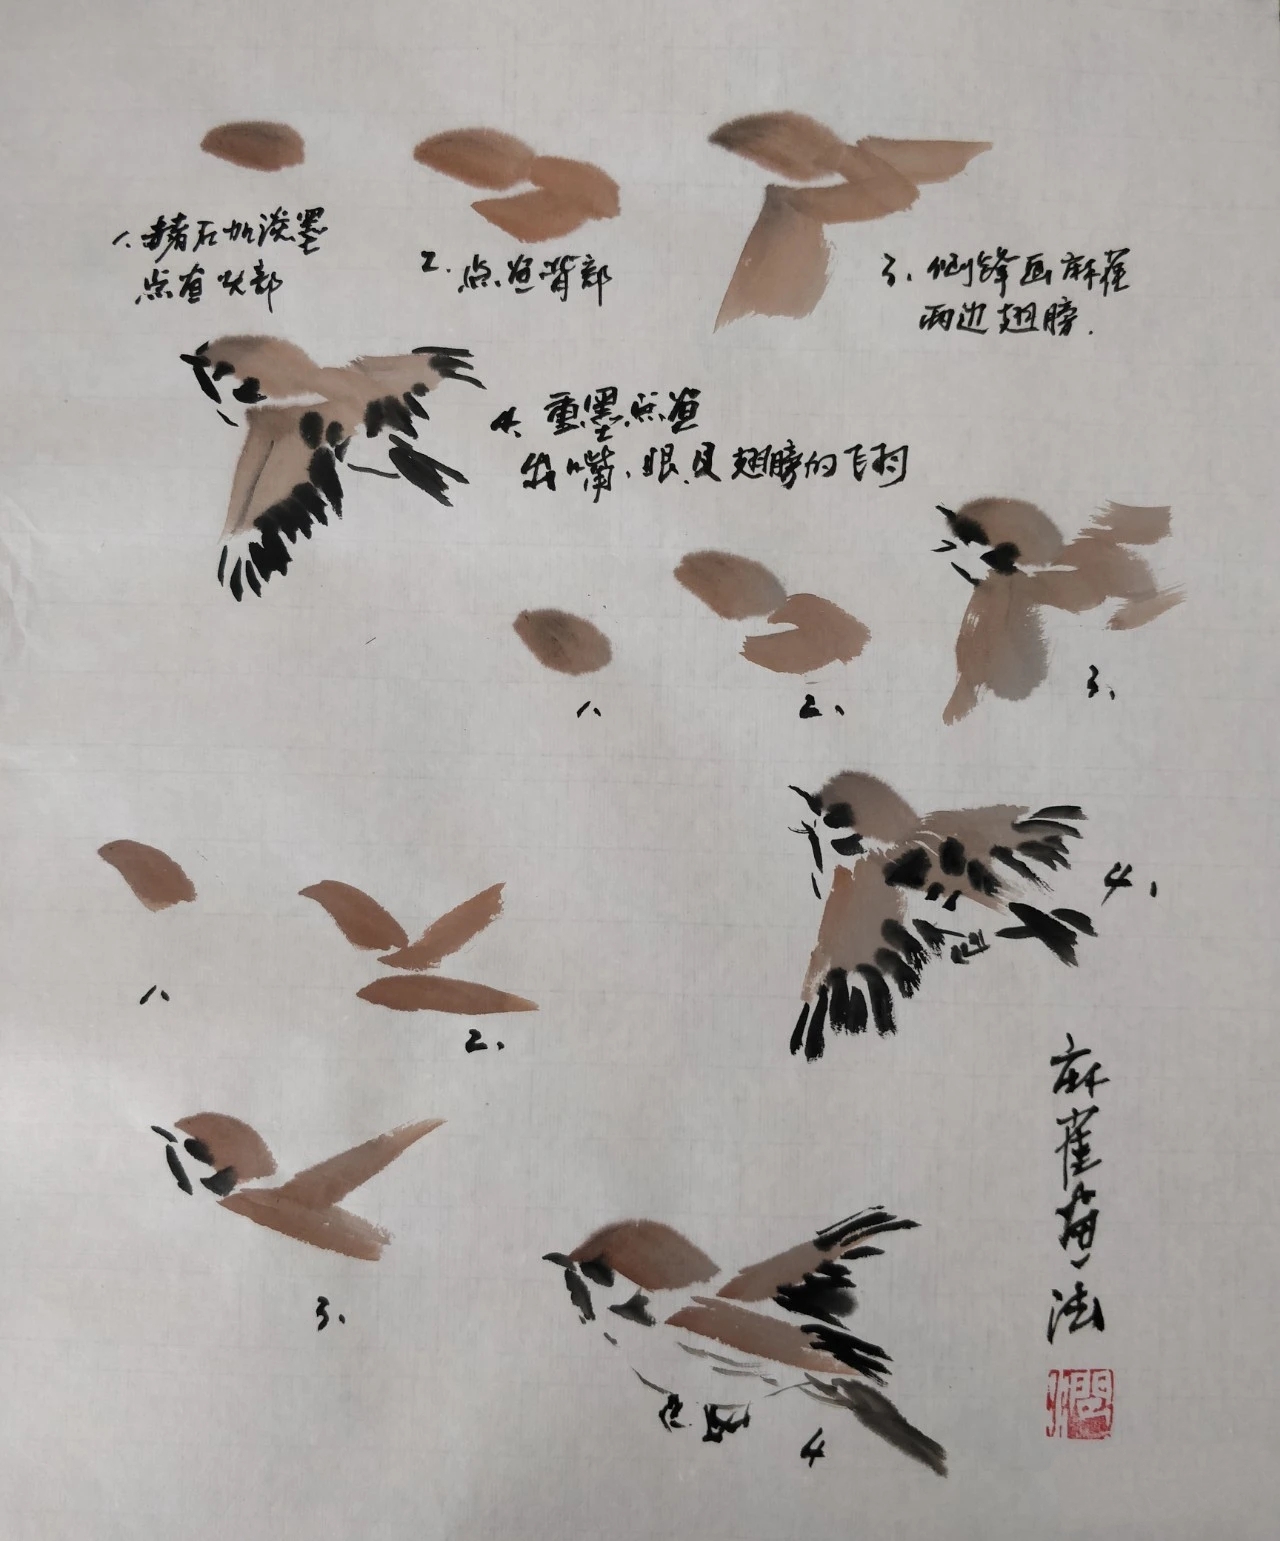 1、赭石加淡墨
点画头部
2、点画背部
3、侧锋画麻雀
两边翅膀.
4、重墨点画
嘴、眼及翅膀的飞羽
1、
2、
3、
4、
1、
2、
3、
4
麻雀画法